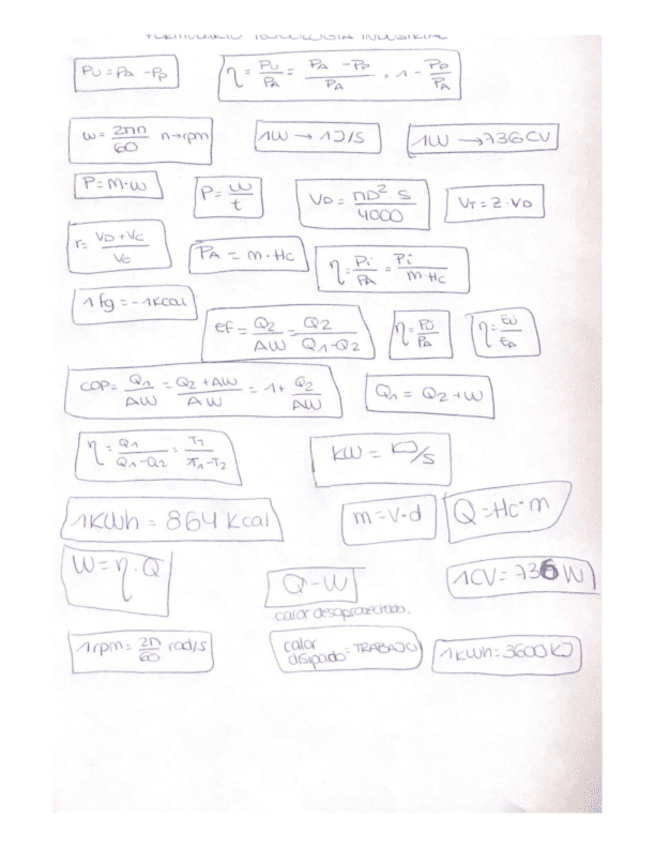 FORMULARIO TECNOLOGÍA INDUSTRIAL
Pu = PA - Pp
η = Pu/PA = PA - Pp/PA = 1 - Pp/PA
w = 2πn/60 n→rpm
1W → 1J/S
1W → 736CV
P = M·w
P = W/t
VD = πD²·S/4000
VT = Z·VD
r = VD+VC/VC
PA = m·Hc
η = Pi/PA = Pi/m·Hc
1fg = -1Kcal
ef = Q2/AW = Q2/Q1-Q2
η = Pu/PA
η = Eu/EA
COP = Q1/AW = Q2+AW/AW = 1+ Q2/AW
Q1 = Q2+W
η = Q1/Q1-Q2 = T1/T1-T2
KW = KJ/S
1KWh = 864 Kcal
m = V·d
Q = Hc·m
W = η·Q
Q-W
calor desaprovechado.
1CV = 736 W
1rpm = 2π/60 rad/s
calor
disipado = TRABAJO
1KWh = 3600KJ